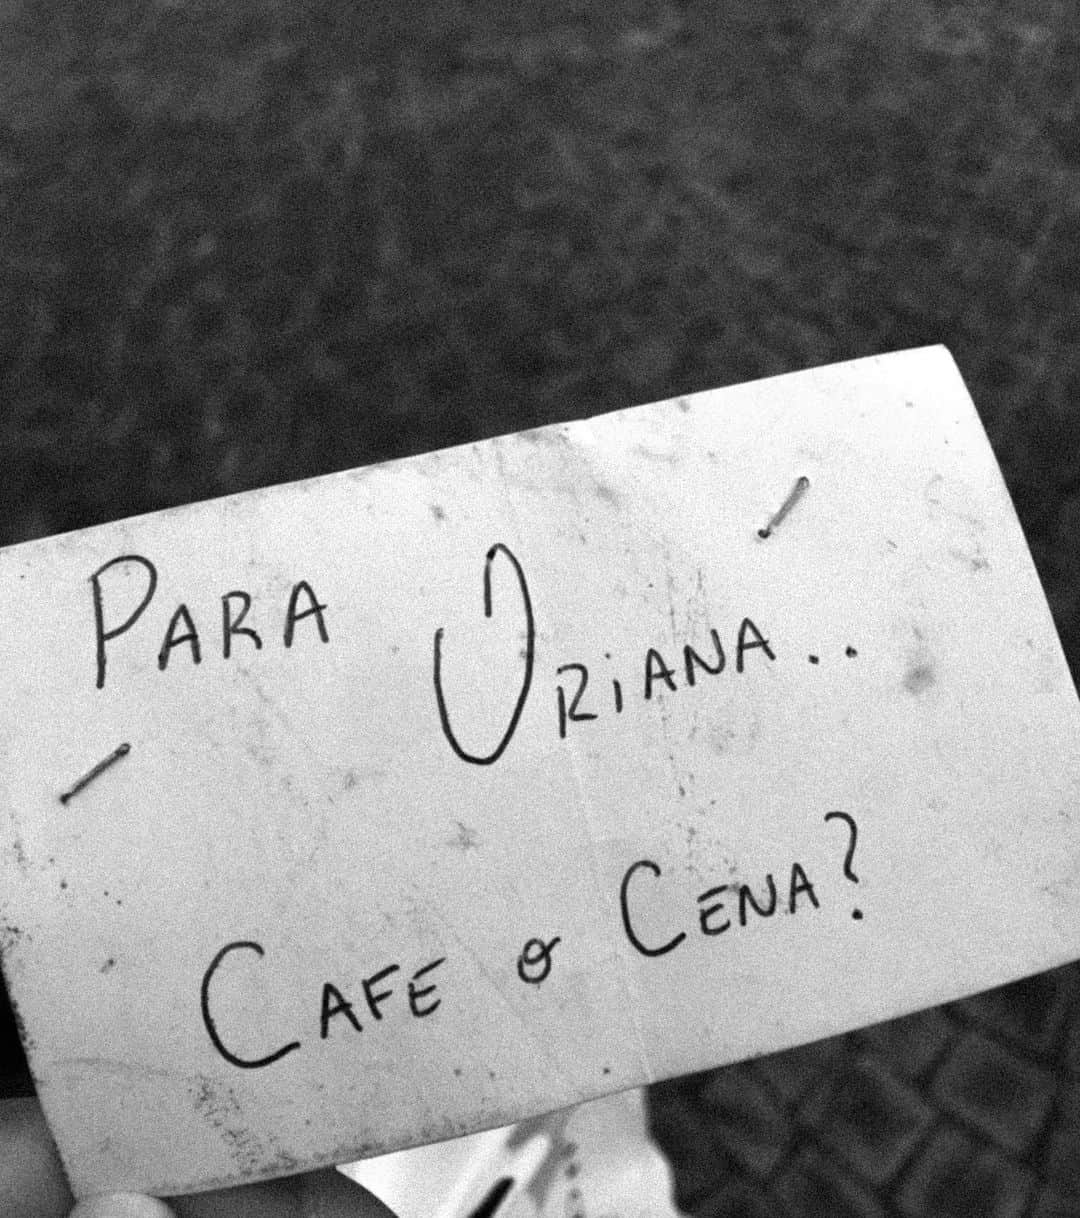 PARA ORiANA..
CAFE o CENA?